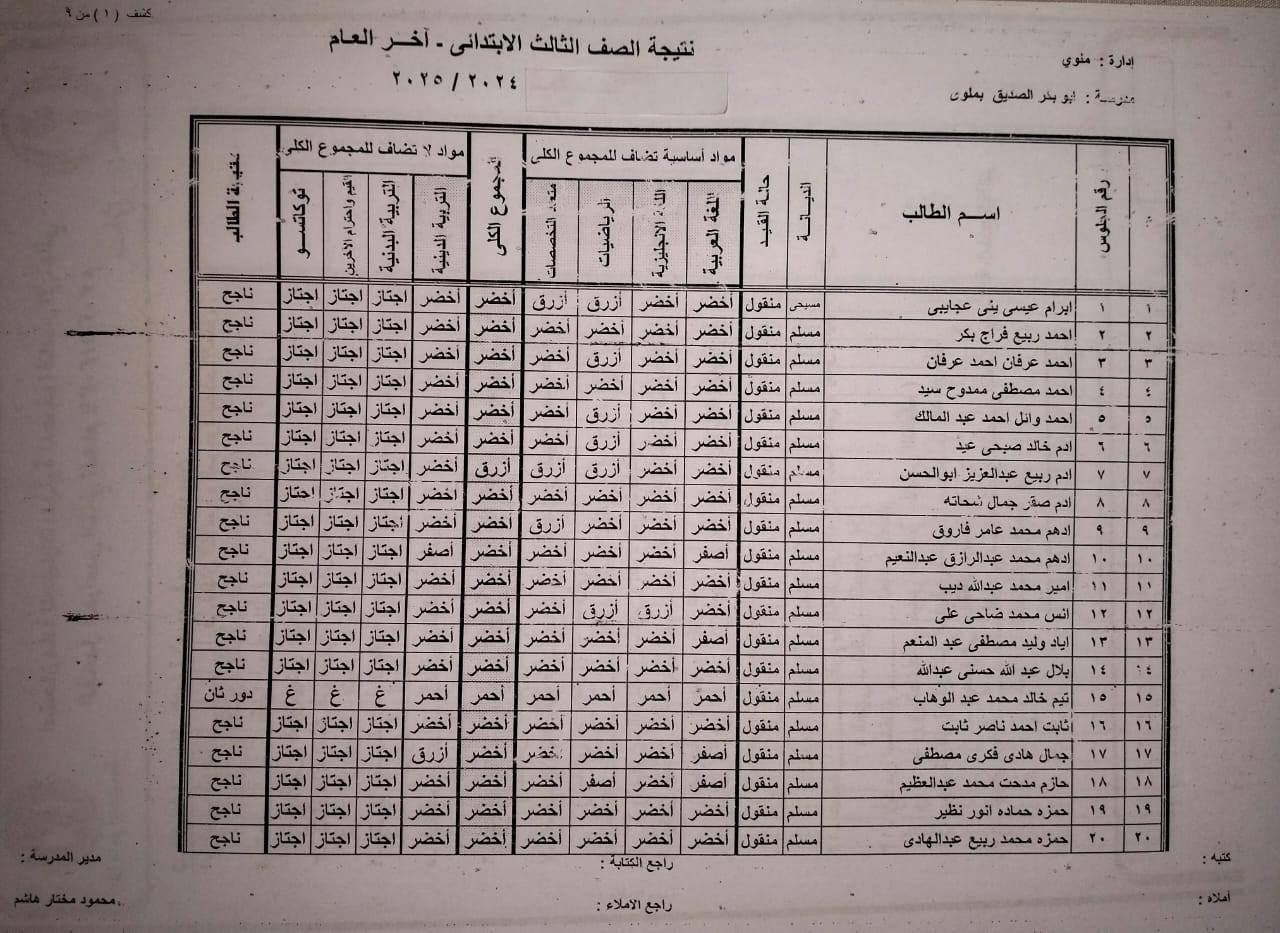 كشف ( ١ ) من ٩
نتيجة الصف الثالث الابتدائى - آخر العام
٢٠٢٤ / ٢٠٢٥
إدارة : ملوي
مدرسة : ابو بكر الصديق بملوى
م | رقم الجلوس | اسم الطالب | الديانة | حالة القيد | مواد أساسية تضاف للمجموع الكلى | المجموع الكلى | مواد لا تضاف للمجموع الكلى | نتيجة الطالب
اللغة العربية | اللغة الانجليزية | الرياضيات | متعدد التخصصات | التربية الدينية | التربية البدنية | القيم واحترام الاخرين | توكاتسو
١ | ١ | ابرام عيسى ينى عجايبى | مسيحى | منقول | أخضر | أخضر | أزرق | أزرق | أخضر | أخضر | اجتاز | اجتاز | اجتاز | ناجح
٢ | ٢ | احمد ربيع فراج بكر | مسلم | منقول | أخضر | أخضر | أخضر | أخضر | أخضر | أخضر | اجتاز | اجتاز | اجتاز | ناجح
٣ | ٣ | احمد عرفان احمد عرفان | مسلم | منقول | أخضر | أخضر | أزرق | أخضر | أخضر | أخضر | اجتاز | اجتاز | اجتاز | ناجح
٤ | ٤ | احمد مصطفى ممدوح سيد | مسلم | منقول | أخضر | أخضر | أخضر | أخضر | أخضر | أخضر | اجتاز | اجتاز | اجتاز | ناجح
٥ | ٥ | احمد وائل احمد عبد المالك | مسلم | منقول | أخضر | أخضر | أزرق | أخضر | أخضر | أخضر | اجتاز | اجتاز | اجتاز | ناجح
٦ | ٦ | ادم خالد صبحى عيد | مسلم | منقول | أخضر | أخضر | أزرق | أخضر | أخضر | أخضر | اجتاز | اجتاز | اجتاز | ناجح
٧ | ٧ | ادم ربيع عبدالعزيز ابوالحسن | مسلم | منقول | أخضر | أخضر | أزرق | أزرق | أزرق | أخضر | اجتاز | اجتاز | اجتاز | ناجح
٨ | ٨ | ادم صقر جمال شحاته | مسلم | منقول | أخضر | أخضر | أخضر | أخضر | أخضر | أخضر | اجتاز | اجتاز | اجتاز | ناجح
٩ | ٩ | ادهم محمد عامر فاروق | مسلم | منقول | أخضر | أخضر | أخضر | أزرق | أخضر | أخضر | اجتاز | اجتاز | اجتاز | ناجح
١٠ | ١٠ | ادهم محمد عبدالرازق عبدالنعيم | مسلم | منقول | أصفر | أخضر | أخضر | أخضر | أخضر | أصفر | اجتاز | اجتاز | اجتاز | ناجح
١١ | ١١ | امير محمد عبدالله ديب | مسلم | منقول | أخضر | أخضر | أخضر | أخضر | أخضر | أخضر | اجتاز | اجتاز | اجتاز | ناجح
١٢ | ١٢ | انس محمد ضاحى على | مسلم | منقول | أخضر | أزرق | أزرق | أخضر | أخضر | أخضر | اجتاز | اجتاز | اجتاز | ناجح
١٣ | ١٣ | اياد وليد مصطفى عبد المنعم | مسلم | منقول | أصفر | أخضر | أخضر | أخضر | أخضر | أخضر | اجتاز | اجتاز | اجتاز | ناجح
١٤ | ١٤ | بلال عبد الله حسنى عبدالله | مسلم | منقول | أخضر | أخضر | أخضر | أخضر | أخضر | أخضر | اجتاز | اجتاز | اجتاز | ناجح
١٥ | ١٥ | تيم خالد محمد عبد الوهاب | مسلم | منقول | أحمر | أحمر | أحمر | أحمر | أحمر | أحمر | غ | غ | غ | دور ثان
١٦ | ١٦ | ثابت احمد ناصر ثابت | مسلم | منقول | أخضر | أخضر | أخضر | أخضر | أخضر | أخضر | اجتاز | اجتاز | اجتاز | ناجح
١٧ | ١٧ | جمال هادى فكرى مصطفى | مسلم | منقول | أصفر | أخضر | أخضر | أخضر | أخضر | أزرق | اجتاز | اجتاز | اجتاز | ناجح
١٨ | ١٨ | حازم مدحت محمد عبدالعظيم | مسلم | منقول | أصفر | أخضر | أصفر | أخضر | أخضر | أخضر | اجتاز | اجتاز | اجتاز | ناجح
١٩ | ١٩ | حمزه حماده انور نظير | مسلم | منقول | أخضر | أخضر | أخضر | أخضر | أخضر | أخضر | اجتاز | اجتاز | اجتاز | ناجح
٢٠ | ٢٠ | حمزه محمد ربيع عبدالهادى | مسلم | منقول | أخضر | أخضر | أخضر | أخضر | أخضر | أخضر | اجتاز | اجتاز | اجتاز | ناجح
كتبه :
راجع الكتابة :
مدير المدرسة :
أملاه :
راجع الاملاء :
محمود مختار هاشم